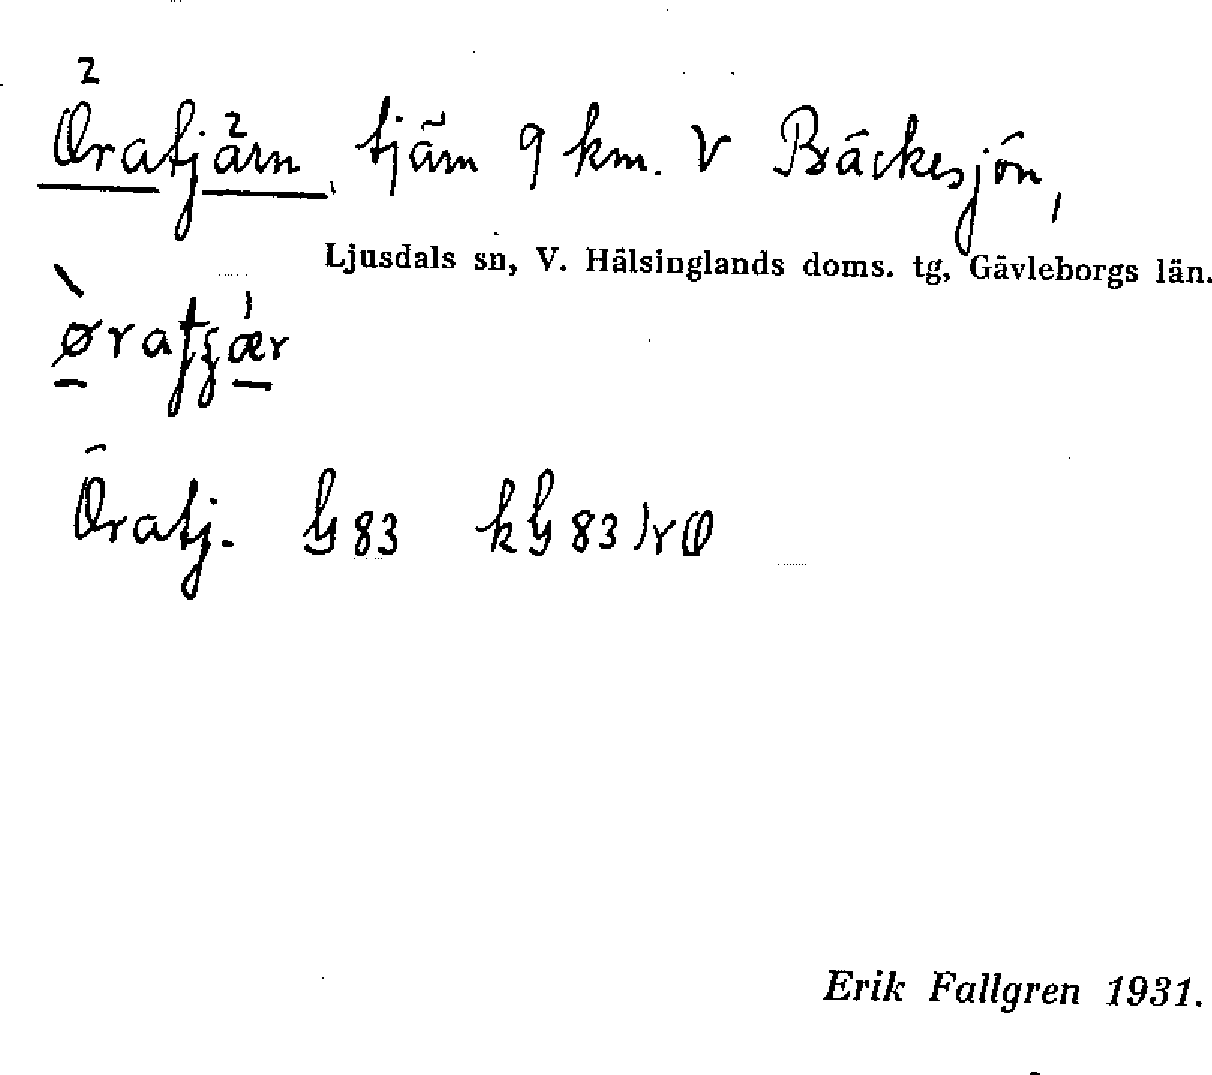 Öratjärn, tjärn 9 km. V Bäckesjön,
Ljusdals sn, V. Hälsinglands doms. tg, Gävleborgs län.
Öratj. G 83 kG 83
Erik Fallgren 1931.